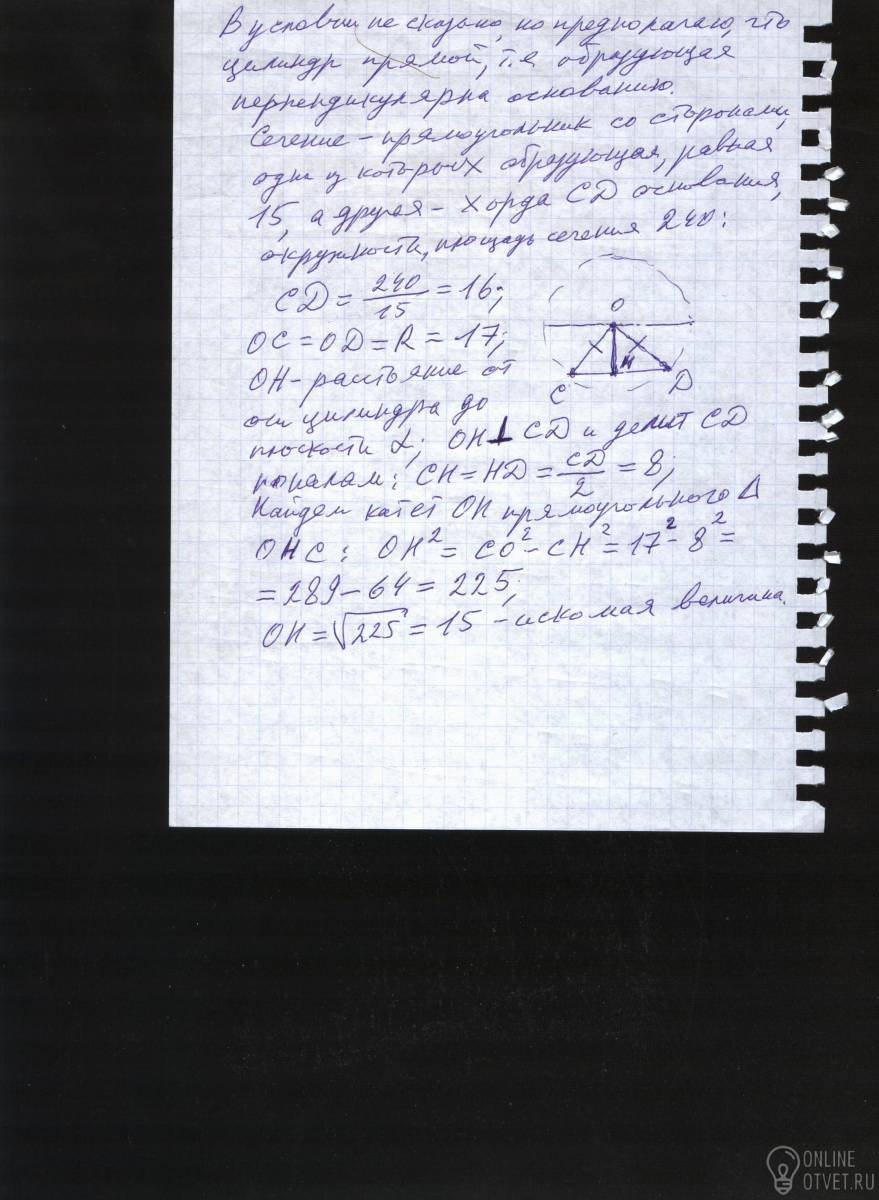 В условии не сказано, но предполагаю, что
цилиндр прямой, т.е образующая
перпендикулярна основанию.
Сечение - прямоугольник со сторонами,
одна из которых образующая, равная
15, а другая - хорда CD основания,
окружности, площадь сечения 240:
CD = 240/15 = 16;
OC = OD = R = 17;
OH - растояние от
оси цилиндра до
плоскости α; OH ⊥ CD и делит CD
пополам: CH = HD = CD/2 = 8;
Найдем катет OH прямоугольного Δ
OHC: OH² = CO² - CH² = 17² - 8² =
= 289 - 64 = 225;
OH = √225 = 15 - искомая величина.
O
H
C
D
ONLINE
OTVET.RU